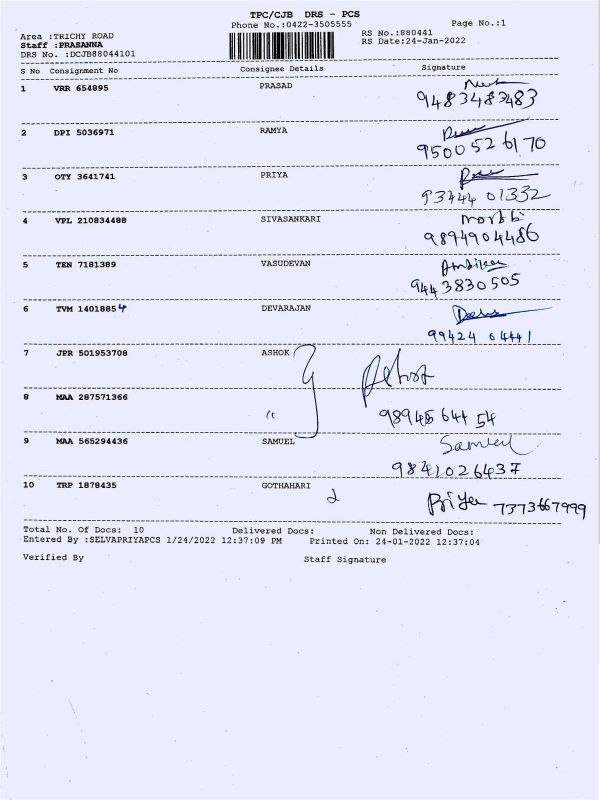 TPC/CJB DRS - PCS
Phone No.:0422-3505555
Page No.:1
Area :TRICHY ROAD
RS No.:880441
Staff :PRASANNA
RS Date:24-Jan-2022
DRS No. :DCJB88044101
S No Consignment No Consignee Details Signature
1 VRR 654895 PRASAD
9483483483
2 DPI 5036971 RAMYA
9500526170
3 OTY 3641741 PRIYA
9344401332
4 VPL 210834488 SIVASANKARI
9894904486
5 TEN 7181389 VASUDEVAN
9443830505
6 TVM 14018854 DEVARAJAN
99424 64441
7 JPR 501953708 ASHOK
8 MAA 287571366
"
9 MAA 565294436 SAMUEL Samuel
9841026437
10 TRP 1878435 GOTHAHARI
Priya 7373667999
Total No. Of Docs: 10 Delivered Docs: Non Delivered Docs:
Entered By :SELVAPRIYAPCS 1/24/2022 12:37:09 PM Printed On: 24-01-2022 12:37:04
Verified By Staff Signature